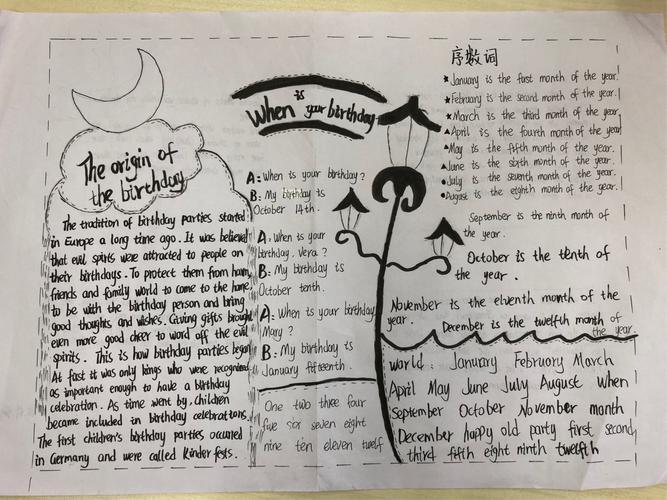 The origin of
the birthday
The tradition of birthday parties started
in Europe a long time ago. It was believed
that evil spirits were attracted to people on
their birthdays. To protect them from harm,
friends and family world to come to the home
to be with the birthday person and bring
good thoughts and wishes. Giving gifts brought
even more good cheer to word off the evil
spirits. This is how birthday parties began
At fast it was only kings who were recognised
as important enough to have a birthday
celebration. As time went by, children
became included in birthday celebrations.
The first children's birthday parties occured
in Germany and were called Kinder fests.
When is your birthday
A: When is your birthday?
B: My birthday is
October 14th.
A: When is your
birthday. Vera?
B: My birthday is
October tenth.
A: When is your birthday
Mary?
B: My birthday is
January fifteenth.
One two three four
five six seven eight
nine ten eleven twelf
序数词
★January is the fast month of the year.
★February is the second month of the year.
★March is the third month of the year
▲April is the fourth month of the year
▲May is the fifth month of the year.
▲June is the sixth month of the year.
●July is the seventh month of the year.
●August is the eighth month of the year.
September is the ninth month of
the year.
October is the tenth of
the year.
November is the eleventh month of the
year. December is the twelfth month of
the year.
world: January February March
April May June July August When
September October November month
December happy old party first second
third fifth eight ninth twelfth